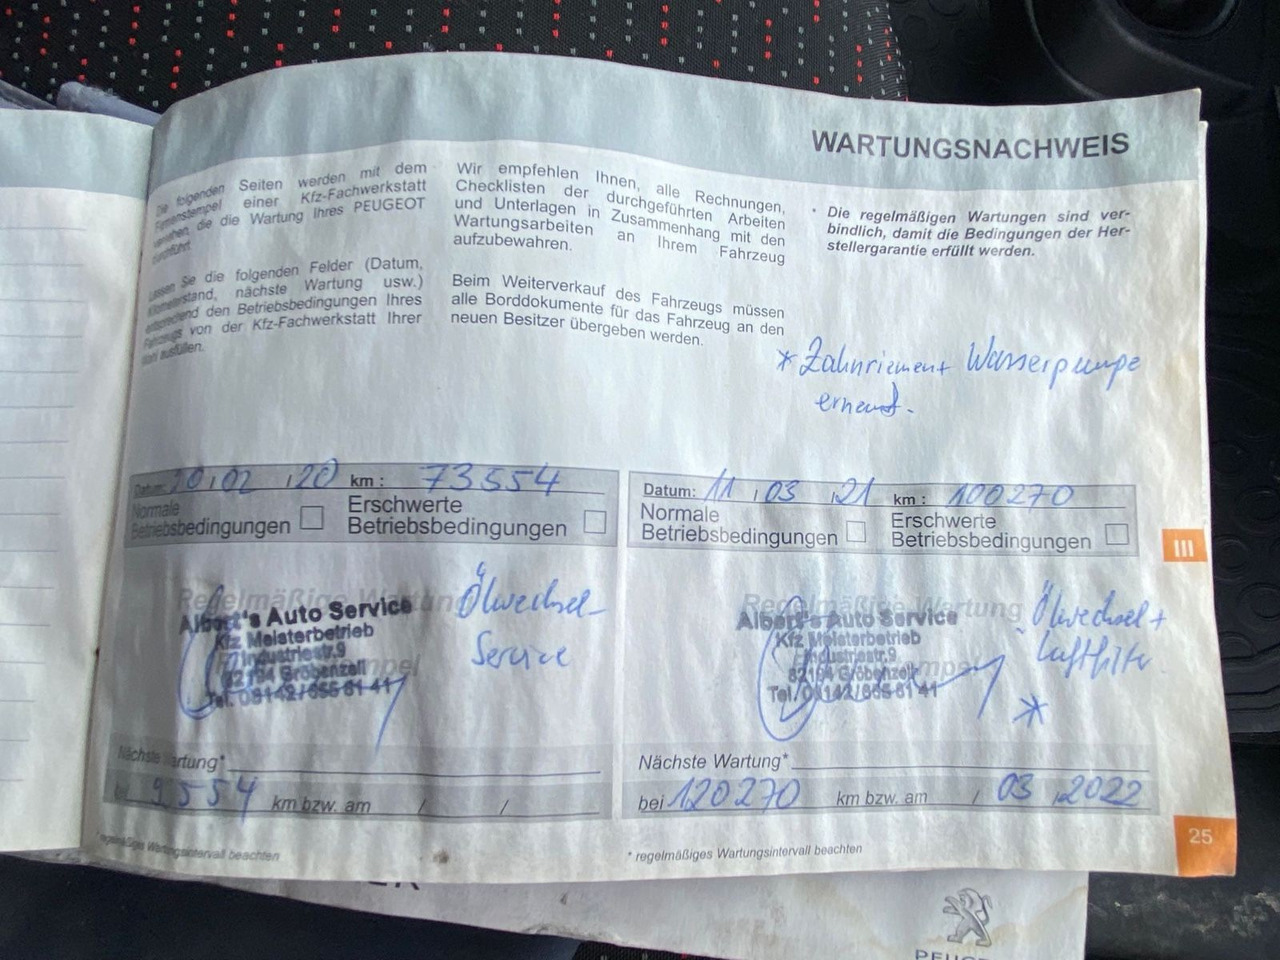 WARTUNGSNACHWEIS
Die folgenden Seiten werden mit dem
Firmenstempel einer Kfz-Fachwerkstatt
versehen, die die Wartung Ihres PEUGEOT
durchführt.
Lassen Sie die folgenden Felder (Datum,
Kilometerstand, nächste Wartung usw.)
entsprechend den Betriebsbedingungen Ihres
Fahrzeugs von der Kfz-Fachwerkstatt Ihrer
Wahl ausfüllen.
Wir empfehlen Ihnen, alle Rechnungen,
Checklisten der durchgeführten Arbeiten
und Unterlagen in Zusammenhang mit den
Wartungsarbeiten an Ihrem Fahrzeug
aufzubewahren.
Beim Weiterverkauf des Fahrzeugs müssen
alle Borddokumente für das Fahrzeug an den
neuen Besitzer übergeben werden.
* Die regelmäßigen Wartungen sind ver-
bindlich, damit die Bedingungen der Her-
stellergarantie erfüllt werden.
* Zahnriemen + Wasserpumpe
erneut.
Datum: 20 02 20 km : 73554
Normale
Betriebsbedingungen
Erschwerte
Betriebsbedingungen
Regelmäßige Wartung
Albert's Auto Service
Kfz Meisterbetrieb
Industriestr. 9
82194 Gröbenzell
Tel. 08142/655 81 41
Ölwechsel-
Service
Nächste Wartung*
bei 9554 km bzw. am / /
* regelmäßiges Wartungsintervall beachten
Datum: 11 03 21 km : 100270
Normale
Betriebsbedingungen
Erschwerte
Betriebsbedingungen
Regelmäßige Wartung
Albert's Auto Service
Kfz Meisterbetrieb
Industriestr. 9
82194 Gröbenzell
Tel. 08142/655 81 41
Ölwechsel +
Luftfilter
*
Nächste Wartung*
bei 120270 km bzw. am / 03 2022
* regelmäßiges Wartungsintervall beachten
III
25